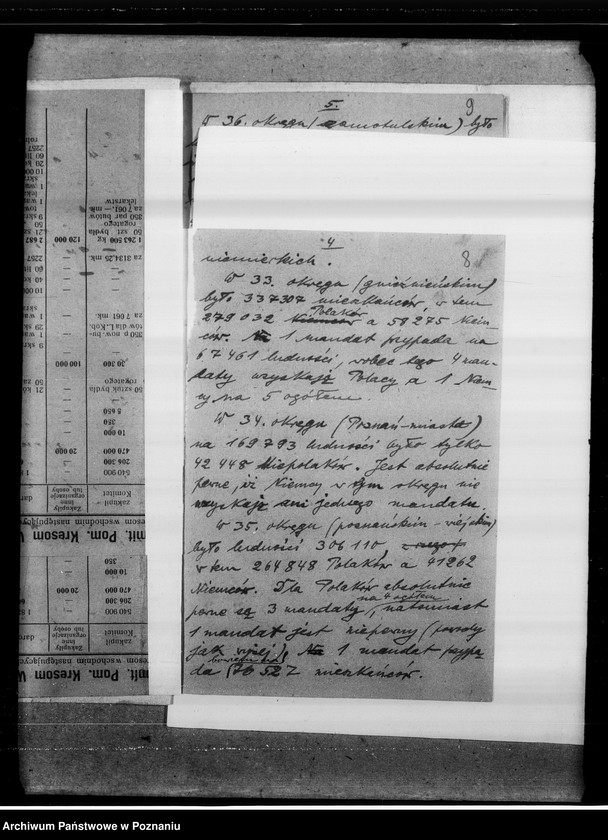 5.
9
W 36. okręgu (szamotulskim) było
4
8
niemieckich.
W 33. okręgu (gnieźnieńskim)
było 337307 mieszkańców, w tem
Polaków
279032 Niemców a 58275 Niem-
ców. Na 1 mandat przypada na
67461 ludności, wobec tego 4 man-
daty uzyskają Polacy a 1 Niem-
cy na 5 ogółem.
W 34. okręgu (Poznań-miasto)
na 169793 ludności było tylko
42448 Niepolaków. Jest absolutnie
pewne, iż Niemcy w tym okręgu nie
uzyskają ani jednego mandatu.
W 35. okręgu (poznańskim-wiejskim)
było ludności 306110,
w tem 264848 Polaków a 41262
Niemców. Dla Polaków absolutnie
na 4 ogółem
pewne są 3 mandaty, natomiast
1 mandat jest niepewny (powody
jak wyżej), Na 1 mandat przypa-
da 76527 mieszkańców.
1 263 500 kg
120 000
50 szt. bydła
rogatego
350 par butów
za 7 061.— mk.
lekarstw
za 3134,25 mk.
za 7 061 mk.
30 300
100 000
50 sztuk bydła
rogatego
8 650
250
10 000
470 000
20 000
206 300
540 900
zakupił
Komitet
Zakupiły
inne
organizacje
lub osoby
esem wschodnim następujące
mit. Pom. Kresom W
350
10 000
470 000
20 000
206 300
540 900
zakupił
Komitet
Zakupiły
inne
organizacje
lub osoby
esom wschodnim następujący
mit. Pom. Kresom W
Archiwum Państwowe w Poznaniu